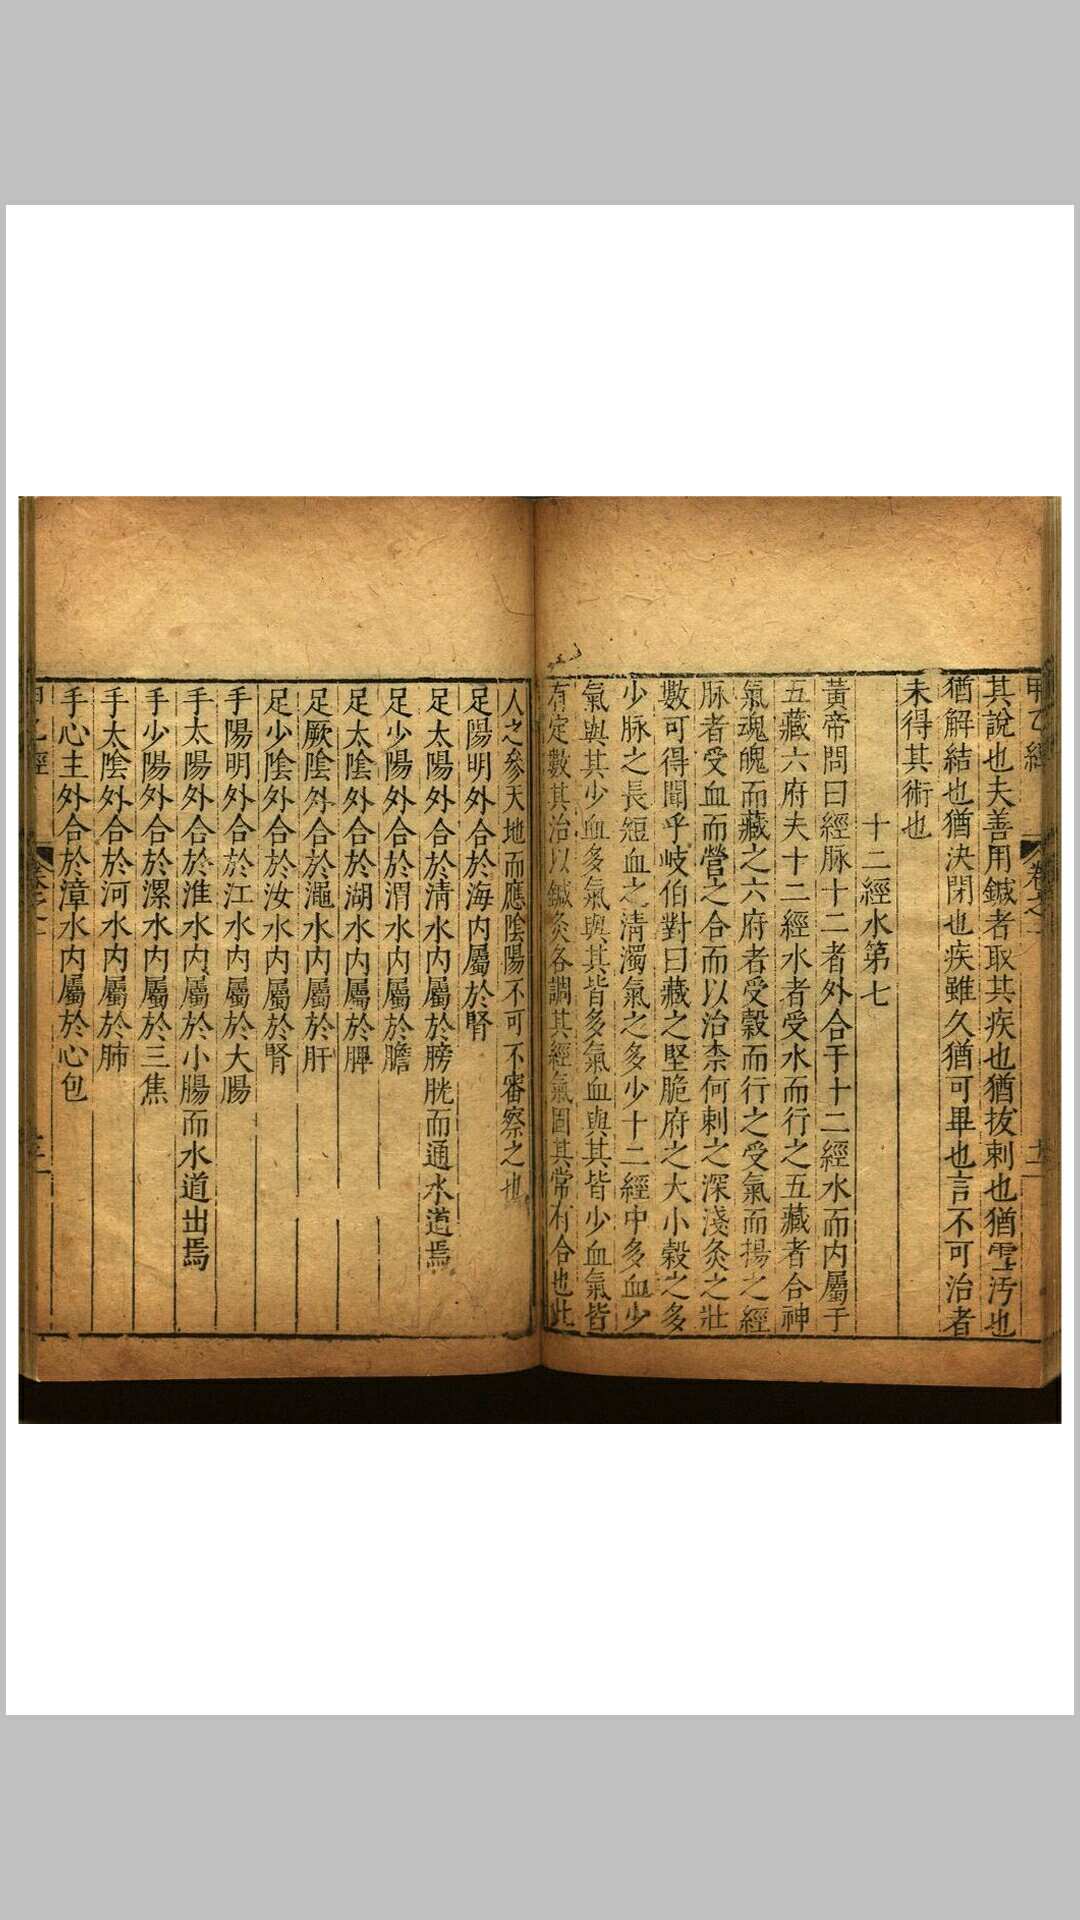 甲乙經 卷之一
其說也夫善用鍼者取其疾也猶拔刺也猶雪汚也
猶解結也猶決閉也疾雖久猶可畢也言不可治者
未得其術也
十二經水第七
黃帝問曰經脉十二者外合于十二經水而内屬于
五藏六府夫十二經水者受水而行之五藏者合神
氣魂魄而藏之六府者受穀而行之受氣而揚之經
脉者受血而營之合而以治柰何刺之深淺灸之壯
數可得聞乎岐伯對曰藏之堅脆府之大小穀之多
少脉之長短血之淸濁氣之多少十二經中多血少
氣與其少血多氣與其皆多氣血與其皆少血氣皆
有定數其治以鍼灸各調其經氣固其常有合也此
人之參天地而應陰陽不可不審察之也
足陽明外合於海水内屬於腎
足太陽外合於淸水内屬於膀胱而通水道焉
足少陽外合於渭水内屬於膽
足太陰外合於湖水内屬於脾
足厥陰外合於澠水内屬於肝
足少陰外合於汝水内屬於腎
手陽明外合於江水内屬於大腸
手太陽外合於淮水内屬於小腸而水道出焉
手少陽外合於漯水内屬於三焦
手太陰外合於河水内屬於肺
手心主外合於漳水内屬於心包
甲乙經 卷之一